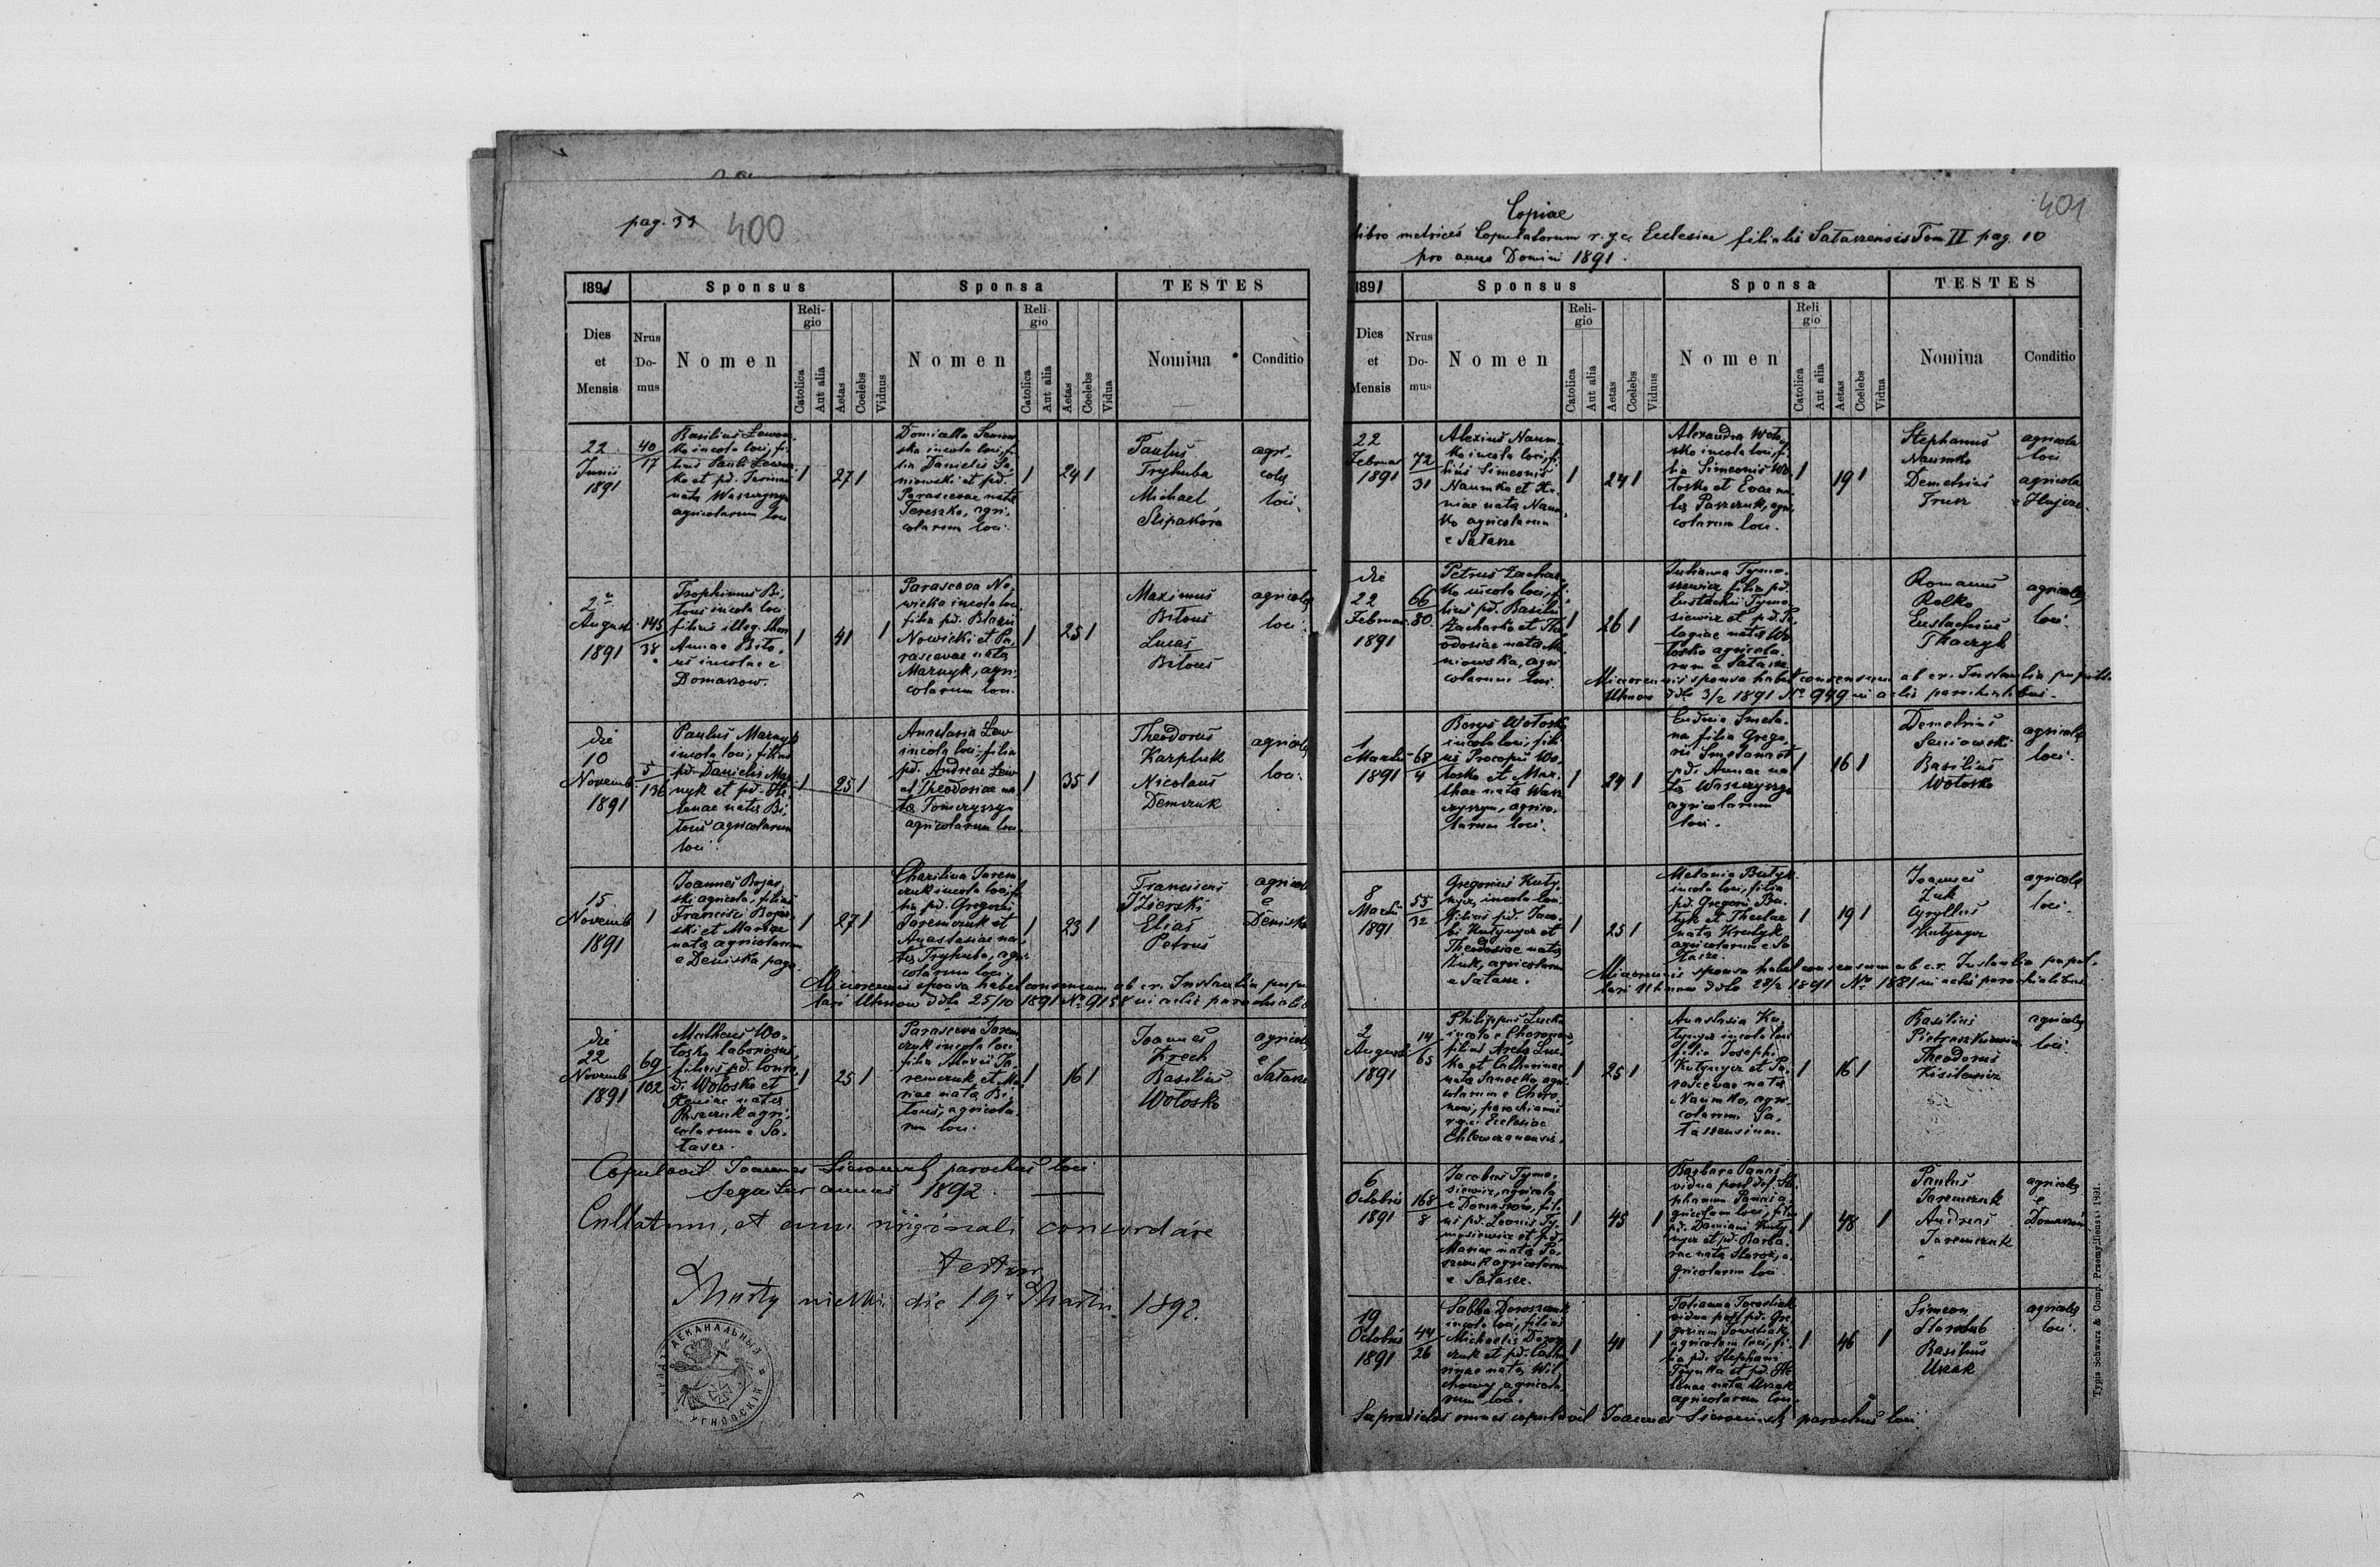 pag. 33 400
1891 Sponsus Sponsa TESTES
Dies et Mensis
Nrus Do- mus
Nomen
Reli- gio
Catolica
Aut alia
Aetas
Coelebs
Viduus
Nomen
Reli- gio
Catolica
Aut alia
Aetas
Coelebs
Vidua
Nomina
Conditio
22
Junii
1891
40
17
Basilius Lewon
ko incola loci, fi
lius Pauli Lewon
ko et pd.
nata Waszczyszyn
agricolarum loci
1 27 1
Domicella Seniow
ska incola loci, fi
lia Danielis Se
niowski et pd.
Parascevae nata
Tereszko, agri
colarum loci.
1 24 1
Paulus
Tryhuba
Michael
Slipakora
agri-
colae
loci.
2
August
1891
145
38
Trophimus Bi,
lous incola loci
filius illeg. thori
Annae Bilo,
us incolae e
Domaszow.
1 41 1
Parasceva No,
wicka incola loci
filia pd. Blasii
Nowicki et Pa,
rascevae nata
Marzyk, agri,
colarum loci.
1 25 1
Maximus
Bilous
Lucas
Bilous
agricolae
loci.
die
10
Novemb
1891
5
136
Paulus Marzyk
incola loci, filius
pd. Danielis Mar
nyk et pd. He,
lenae nata Bi,
lous agricolarum
loci.
1 25 1
Anastasia Lew
incola loci, filia
pd. Andreae Lew
et Theodosiae na
ta Tomczyszyn
agricolarum loci.
1 35 1
Theodorus
Karpluk
Nicolaus
Demczuk
agricolae
loci.
15
Novemb
1891
1
Joannes Bojar,
ski agricola, filius
Francisci Bojar
ski et Mariae
nata agricolarum
e Deniska pago.
1 27 1
Charitina Jarem
czuk incola loci, fi
lia pd. Gregorii
Jaremczuk et
Anastasiae na
ta Tryhuba, agri
colarum loci.
1 23 1
Franciscus
Elias
Petrus
agricolae
e
Deniska
Minorennis sponsa habet consensum ab cr. Instantia pupil
lari Uhnow ddto 25/10 1891 No 9158 in actis parochialib
die
22
Novemb
1891
69
102
Matheus Wo-
losko laboriosus,
filius pd. Conra,
di Wolosko et
Xeniae nata
Paszczuk agri,
colarum e Sa,
lasze.
1 25 1
Parasceva Jarem
czuk incola loci
filia Alexii Ja,
remczuk et Ma,
riae nata Bi,
lous, agricola,
rum loci.
1 16 1
Joannes
Krech
Basilius
Wolosko
agricolae
e
Salasze
Copulavit Joannes parochus loci
Sequitur annus 1892.
Collatum, et cum originali concordare
testor
die 19 Martii 1892.
401
Copiae
libro metrices Copulatorum r.g.c. Ecclesiae filialis Salaszensis Tom II pag. 10
pro anno Domini 1891.
1891 Sponsus Sponsa TESTES
Dies et Mensis
Nrus Do- mus
Nomen
Reli- gio
Catolica
Aut alia
Aetas
Coelebs
Viduus
Nomen
Reli- gio
Catolica
Aut alia
Aetas
Coelebs
Vidua
Nomina
Conditio
22
Februar
1891
72
31
Alexius Naum-
ko incola loci, fi,
lius Simeonis
Naumko et Xe-
niae nata Naum,
ko agricolarum
e Salasze
1 24 1
Alexandra Wolo
sko incola loci, fi
lia Simeonis Wo
losko et Evae na
ta Paszczuk, agri,
colarum loci.
1 19 1
Stephanus
Naumko
Demetrius
Trusz
agricola
loci
agricola
e Hujcze.
die
22
Februar.
1891
66
80.
Petrus Zachar,
ko incola loci, fi
lius pd. Basilii
Zacharko et The
odosiae nata Se
niowska, agri
colarum loci.
1 26 1
Julianna Tymo-
szewicz filia pd.
Eustachii Tymo
siewicz et pd. Pe
lagiae nata Wo
losko agricola,
rum e Salasze
Romanus
Rolko
Eustachius
Tkaczyk
agricolae
loci.
Minorennis sponsa habet consensum ab cr. Instantia pupilla
Uhnow ddto 3/2 1891 No 949 in actis parochialibus.
1
Martii
1891
68
4
Borys Wolosko
incola loci, fili
us Procopii Wo
losko et Mar-
thae nata Wasz
czyszyn, agrico,
larum loci.
1 24 1
Eudocia Smeta-
na filia Grego,
rii Smetana et
pd. Annae na
ta Waszczyszyn
agricolarum
loci.
1 16 1
Demetrius
Seniowski
Basilius
Wolosko
agricolae
loci.
8
Martii
1891
55
32
Gregorius Kuty,
nycz, incola loci
filius pd. Jaco-
bi Kutynycz et
Theodosiae nata
Zuk, agricolarum
e Salasze.
1 25 1
Melania Butyk
incola loci, filia
pd. Gregorii Bu
tyk et Theclae
nata Krutyk
agricolarum e Sa
lasze.
1 19 1
Joannes
Zuk
Cyryllus
Kutynycz
agricolae
loci.
Minorennis sponsa habet consensum ab cr. Instantia pupil-
lari Uhnow ddto 28/2 1891 No 1881 in actis parochialibus
2
Augusti
1891
14
65
Philippus Lucko
incola e Choronow
filius Luc-
ko et Catharinae
nata Sanocka agri
colarum e Choro,
now, parochianus
r.g.c. Ecclesiae
Chlewczanensis.
1 25 1
Anastasia Ku,
tynycz incola loci
filia Josephi
Kutynycz et Pa,
rascevae nata
Naumko, agri,
colarum Sa,
laszensium.
1 16 1
Basilius
Theodorus
Kisilewicz
agricolae
loci.
6
Octobris
1891
168
8
Jacobus Tymo,
siewicz, agricola
e Domaszow, fili
us pd. Leonis Ty,
mosiewicz et pd.
Mariae nata Pa,
szczuk agricolarum
e Salasze.
1 45 1
Barbara Panas
vidua post def. Ste
phanum Panas a,
gricolam loci, filia
pd. Damiani Kuty
nycz et pd. Barba,
rae nata a,
gricolarum loci.
1 48 1
Paulus
Jaremczuk
Andreas
Jaremczuk
agricolae
e
Domaszow
19
Octobris
1891
44
26
Sabba Doroszczuk
incola loci, filius
Michaelis Dorosz
czuk et pd. Catha
rinae nata Wil,
chowy agricola,
rum loci.
1 41 1
Tatianna
vidua post pd. Gre
gorium
agricolam loci, fi
lia pd. Stephani
et pd. He
lenae nata Uszak
agricolarum loci.
1 46 1
Simeon
Starosub
Basilius
Uszak
agricolae
loci.
Supradictos omnes copulavit Joannes parochus loci.
Typis Schwarz & Comp. Praemysliensi 1891.